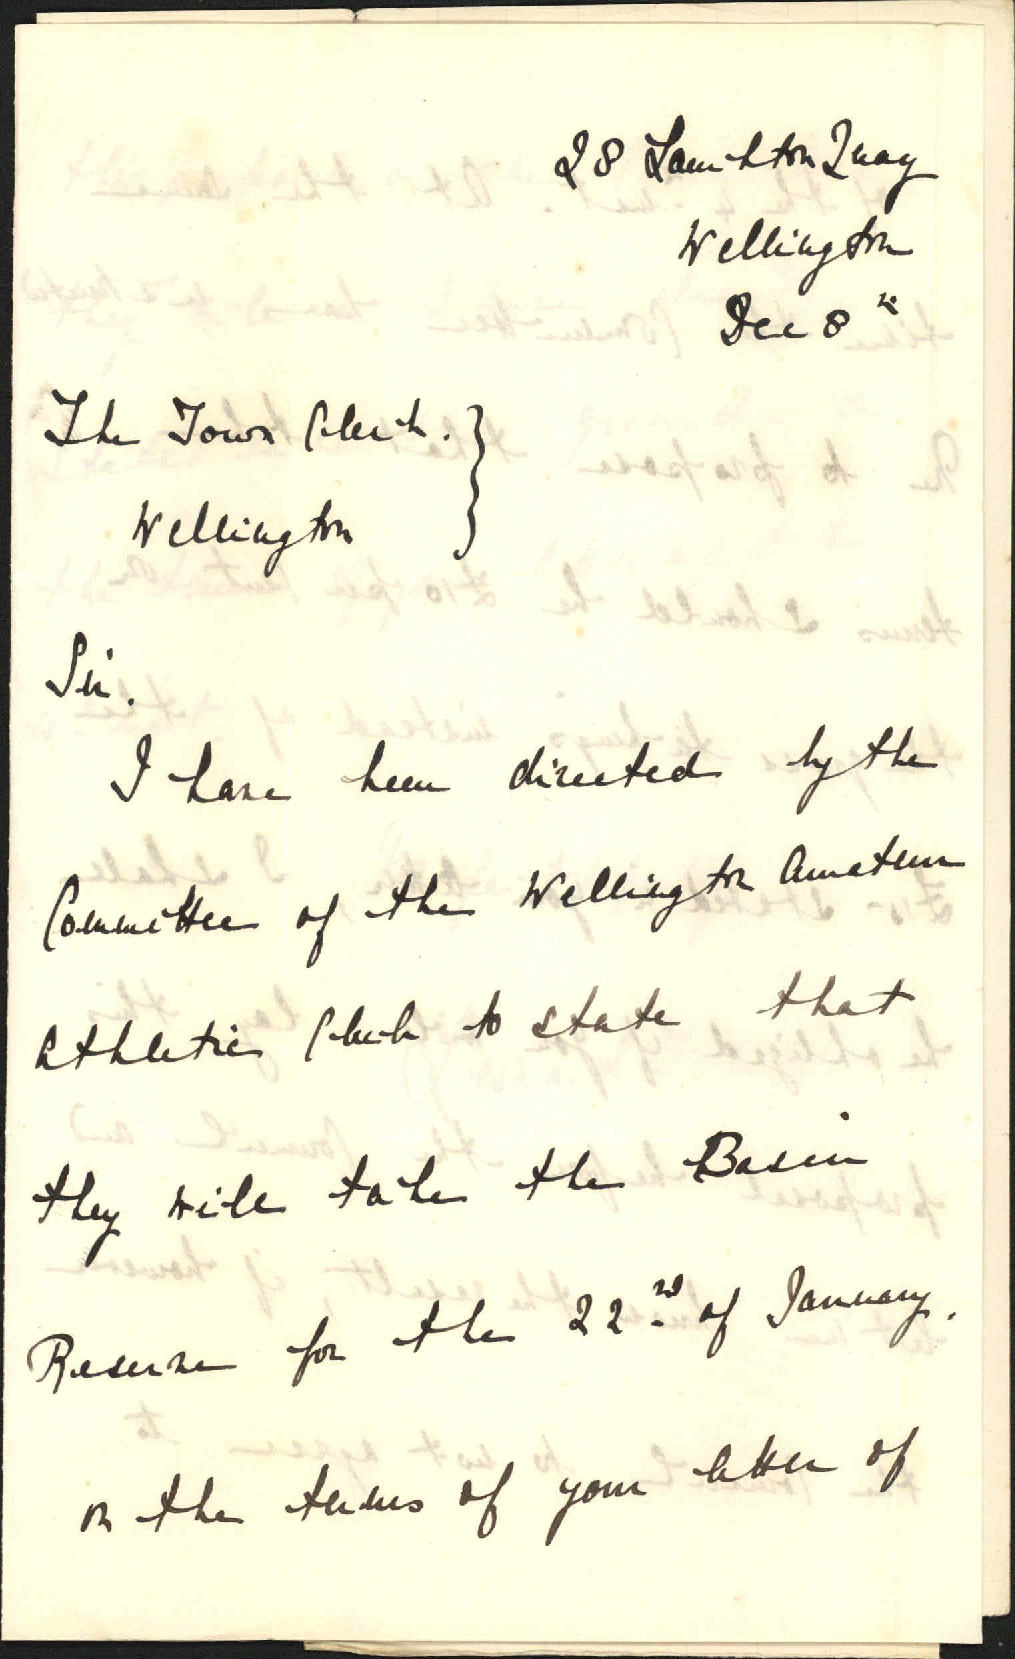 28 Lambton Quay
Wellington
Dec 8th
The Town Clerk.
Wellington
Sir.
I have been directed by the
Committee of the Wellington Amateur
Athletic Club to state that
they will take the Basin
Reserve for the 22nd of January.
on the terms of your letter of